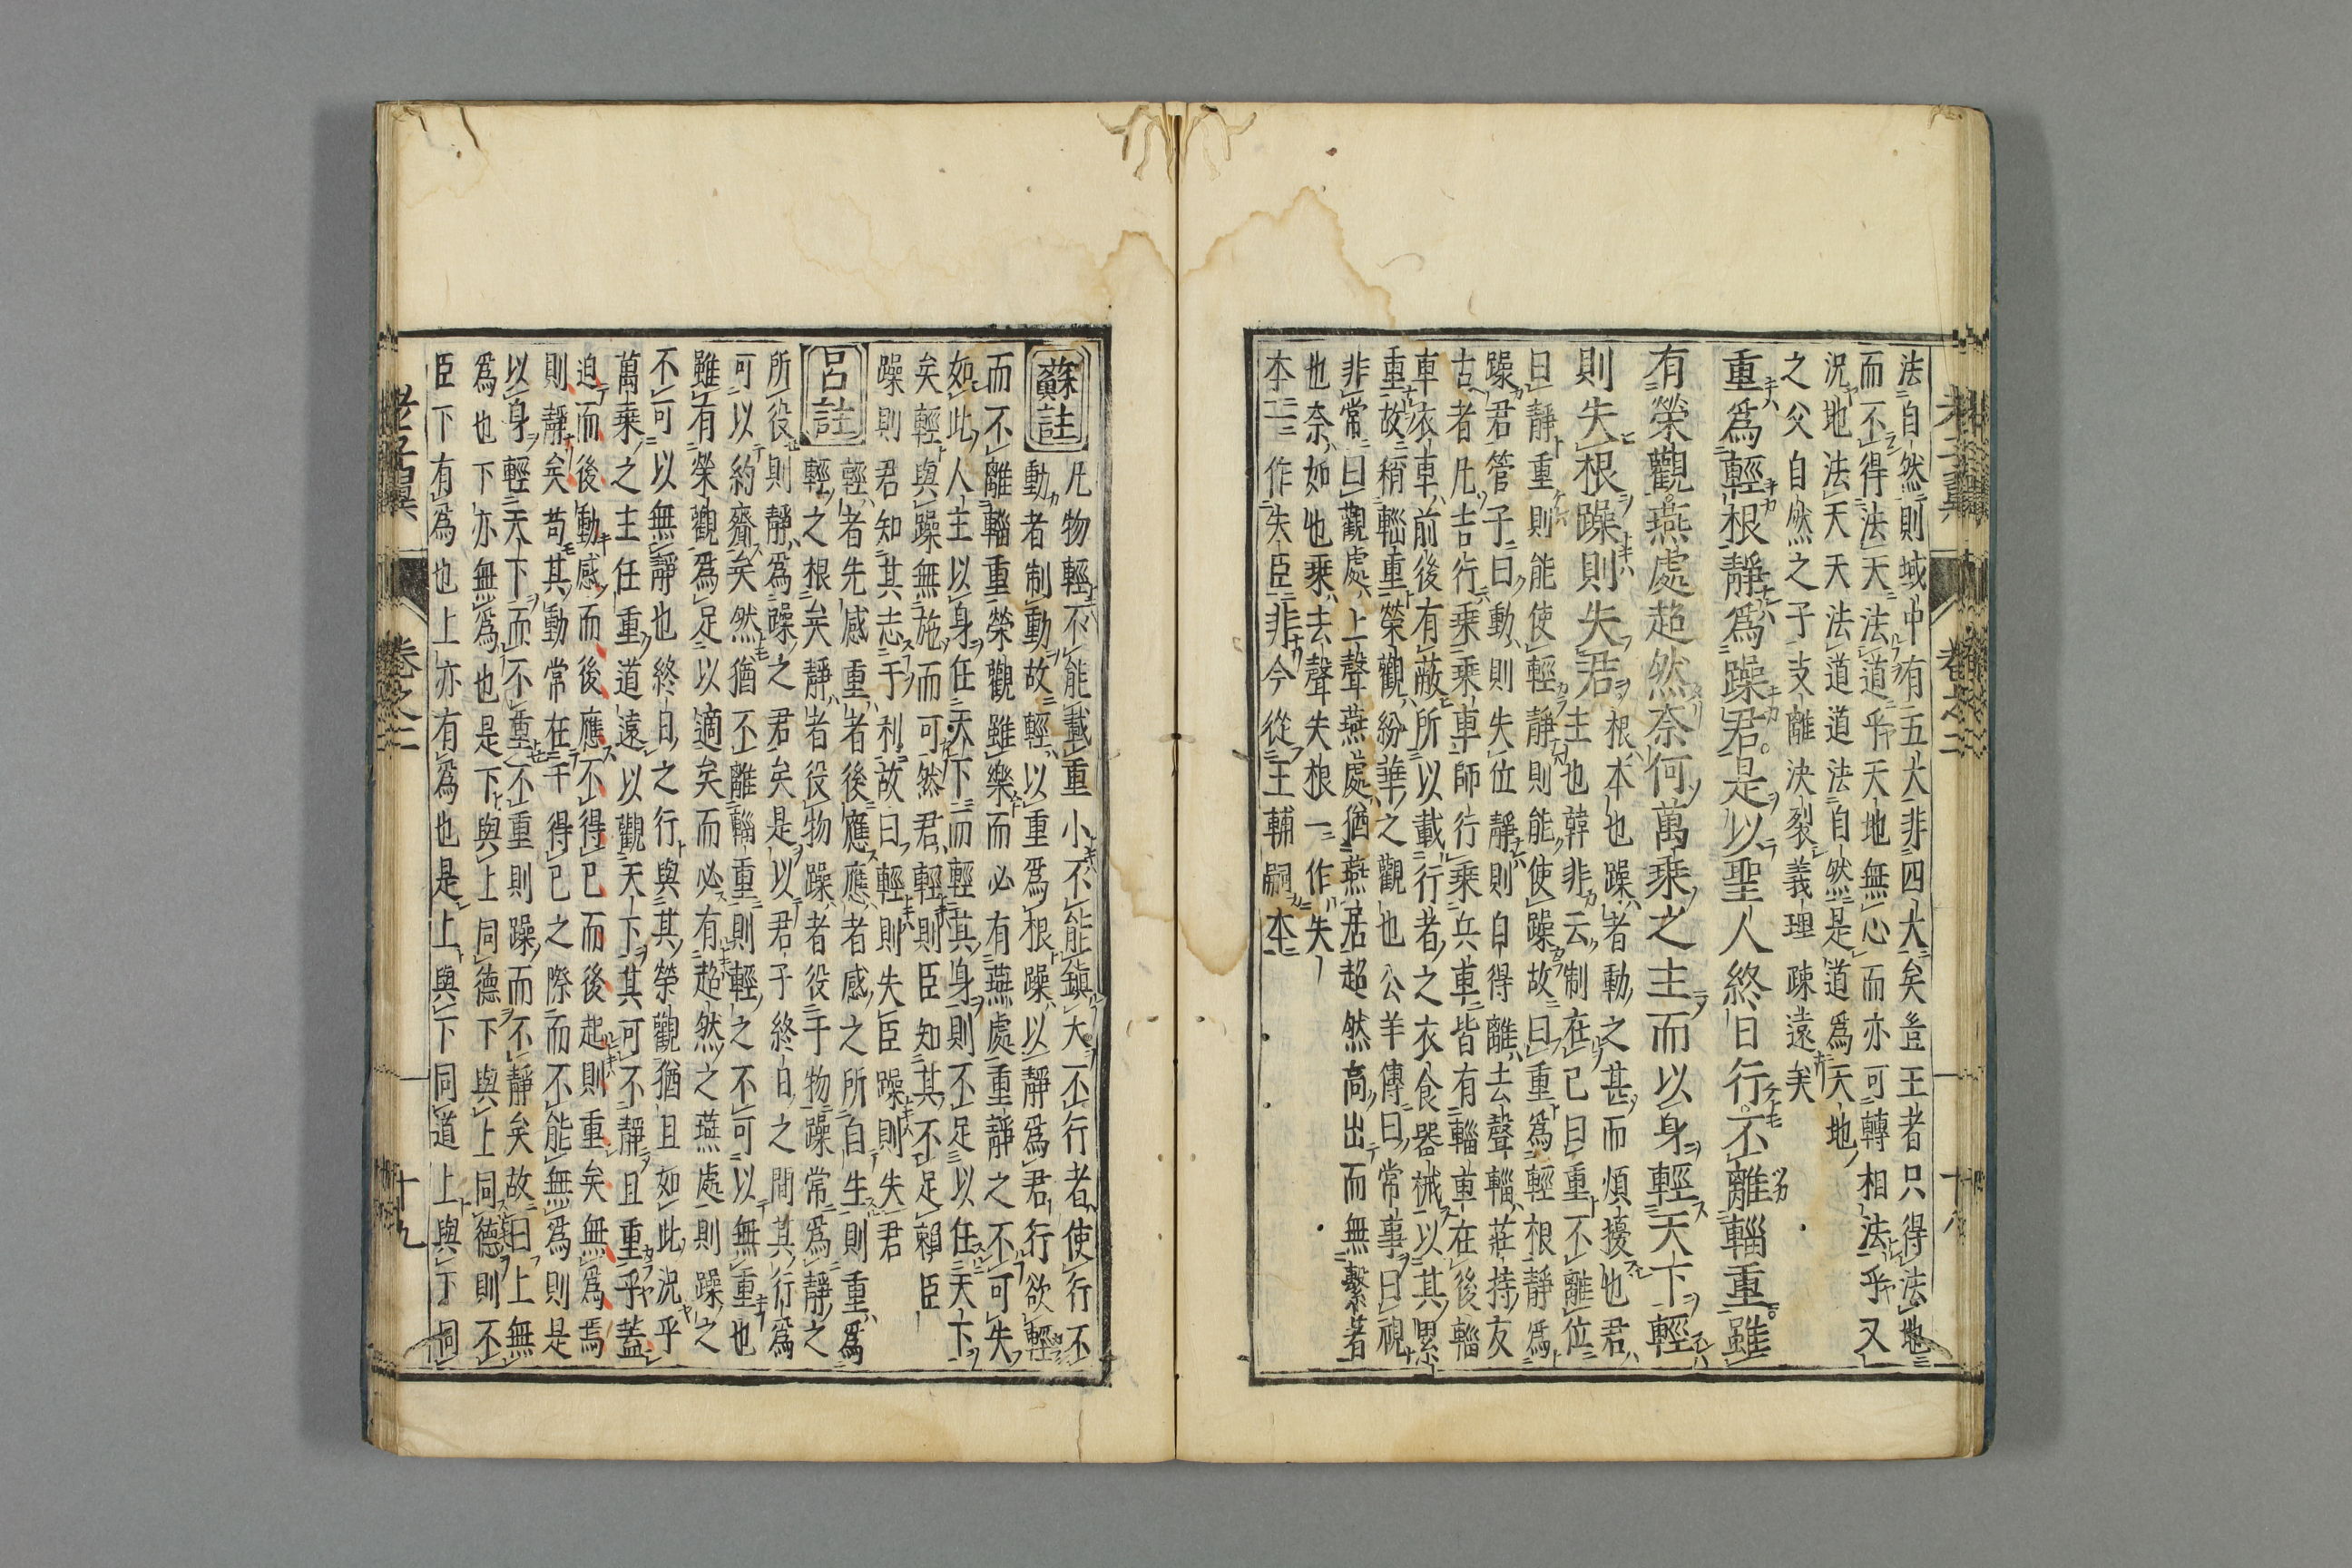 法自然則域中有五大非四大矣豈王者只得法地
而不得法天法道乎天地無心而亦可轉相法乎又
況地法天天法道道法自然是道爲天地
之父自然之子支離決裂義理疎遠矣
重爲輕根靜爲躁君是以聖人終日行不離輜重雖
有榮觀燕處超然奈何萬乘之主而以身輕天下輕
則失根躁則失君
根本也躁者動之甚而煩擾也君
主也韓非云制在己曰重不離位
曰靜重則能使輕靜則能使躁故曰重爲輕根靜爲
躁君管子曰動則失位靜則自得離去聲輜莊持友
古者凡吉行乘乘車師行乘兵車皆有輜重在後輜
車衣車前後有蔽所以載行者之衣食器械以其累
重故稍輜重榮觀紛華之觀也公羊傳曰常事曰視
非常曰觀處上聲燕處猶燕居超然高出而無繫著
也奈如也乘去聲失根一作失
本一作失臣非今從王輔嗣本
老子翼 卷之二 十八
蘇註
凡物輕不能載重小不能鎮大不行者使行不
動者制動故輕以重爲根躁以靜爲君行欲輕
而不離輜重榮觀雖樂而必有燕處重靜之不可失
如此人主以身任天下而輕其身則不足以任天下
矣輕與躁無施而可然君輕則臣知其不足賴臣
躁則君知其志于利故曰輕則失臣躁則失君
呂註
輕者先感重者後應應者感之所自生則重爲
輕之根矣靜者役物躁者役于物躁常爲靜之
所役則靜爲躁之君矣是以君子終日之間其行爲
可以約齎矣然猶不離輜重則輕之不可以無重也
雖有榮觀爲足以適矣而必有超然之燕處則躁之
不可以無靜也終日之行與其榮觀猶且如此況乎
萬乘之主任重道遠以觀天下其可不靜且重乎蓋
迫而後動感而後應不得已而後起則重矣無爲焉
則靜矣苟其動常在于得已之際而不能無爲則是
以身輕天下而不重不重則躁而不靜矣故曰上無
爲也下亦無爲也是下與上同德下與上同德則不
臣下有爲也上亦有爲也是上與下同道上與下同
老子翼 卷之二 十九